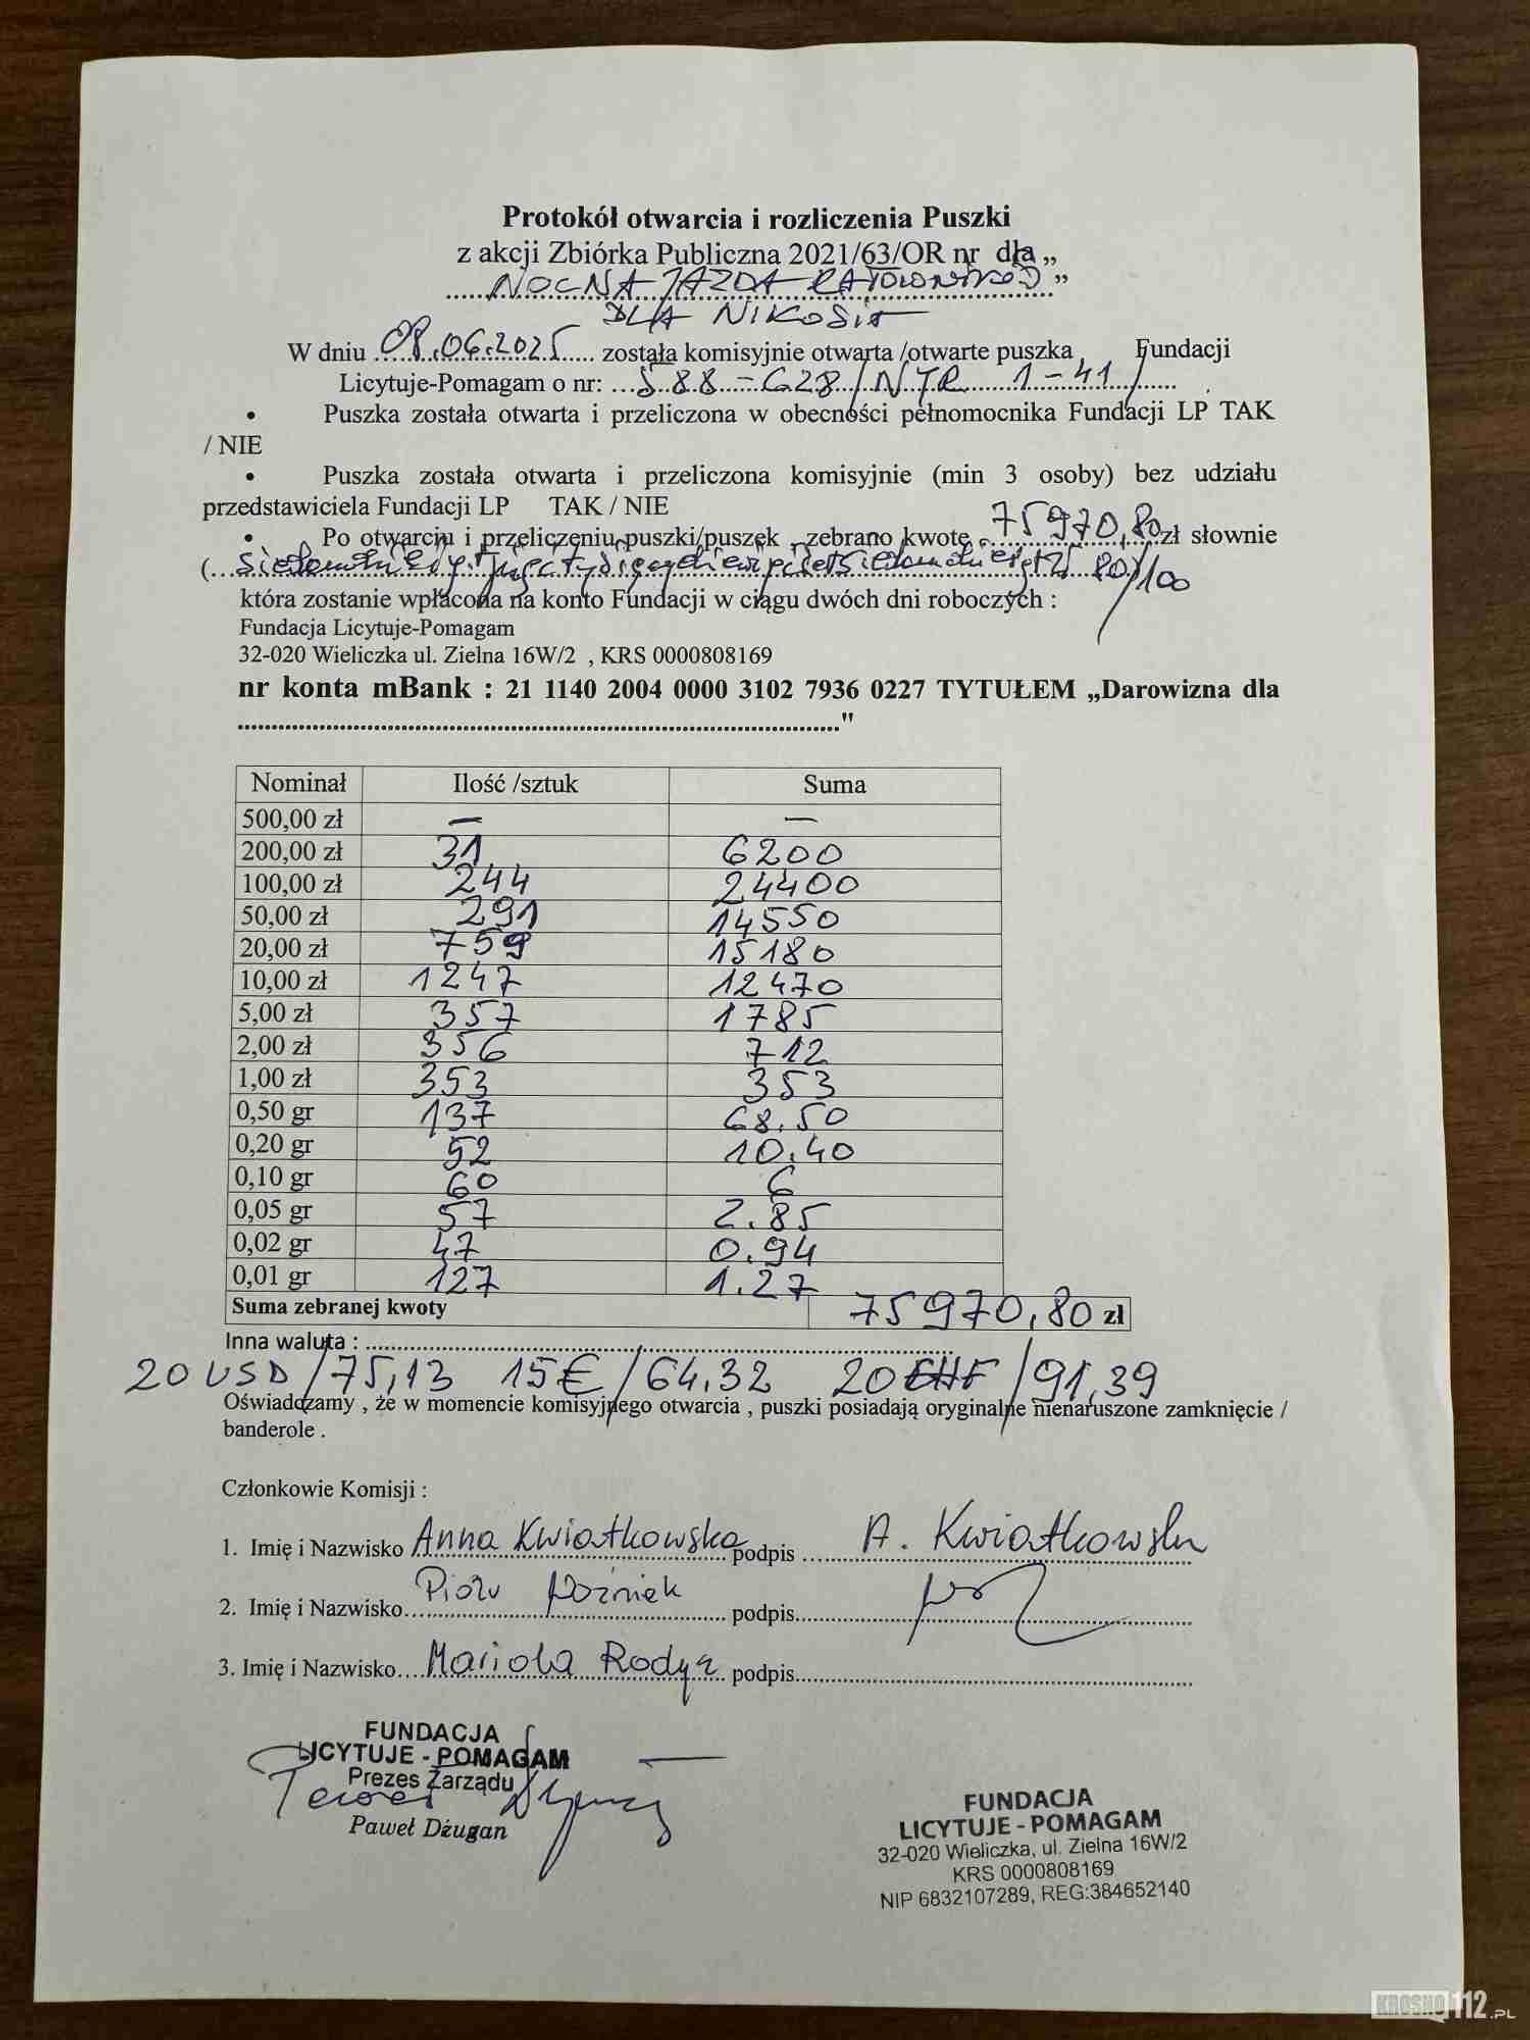 Protokół otwarcia i rozliczenia Puszki
z akcji Zbiórka Publiczna 2021/63/OR nr dla „
NOCNA JAZDA RATOWNIKÓW ”
DLA NIKOSIA
W dniu 08.06.2025 została komisyjnie otwarta /otwarte puszka , Fundacji
Licytuje-Pomagam o nr: 588-628/NJR 1-41/
• Puszka została otwarta i przeliczona w obecności pełnomocnika Fundacji LP TAK
/ NIE
• Puszka została otwarta i przeliczona komisyjnie (min 3 osoby) bez udziału
przedstawiciela Fundacji LP TAK / NIE
• Po otwarciu i przeliczeniu puszki/puszek zebrano kwotę 75970,80 zł słownie
( siedemdziesiąt pięć tysięcy dziewięćset siedemdziesiąt zł 80/100
która zostanie wpłacona na konto Fundacji w ciągu dwóch dni roboczych :
Fundacja Licytuje-Pomagam
32-020 Wieliczka ul. Zielna 16W/2 , KRS 0000808169
nr konta mBank : 21 1140 2004 0000 3102 7936 0227 TYTUŁEM „Darowizna dla
"
Nominał Ilość /sztuk Suma
500,00 zł — —
200,00 zł 31 6200
100,00 zł 244 24400
50,00 zł 291 14550
20,00 zł 759 15180
10,00 zł 1247 12470
5,00 zł 357 1785
2,00 zł 356 712
1,00 zł 353 353
0,50 gr 137 68.50
0,20 gr 52 10.40
0,10 gr 60 6
0,05 gr 57 2.85
0,02 gr 47 0.94
0,01 gr 127 1.27
Suma zebranej kwoty 75970,80 zł
Inna waluta :
20 USD /75,13 15€/64,32 20 CHF /91,39
Oświadczamy , że w momencie komisyjnego otwarcia , puszki posiadają oryginalne nienaruszone zamknięcie /
banderole .
Członkowie Komisji :
1. Imię i Nazwisko Anna Kwiatkowska podpis A. Kwiatkowska
2. Imię i Nazwisko Piotr Woźniak podpis
3. Imię i Nazwisko Mariola Rodyr podpis
FUNDACJA
LICYTUJE - POMAGAM
Prezes Zarządu
Paweł Dżugan
FUNDACJA
LICYTUJE - POMAGAM
32-020 Wieliczka, ul. Zielna 16W/2
KRS 0000808169
NIP 6832107289, REG:384652140
KROSNO112.PL